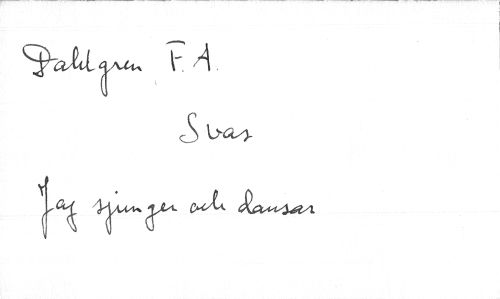 Dahlgren F. A.
Svar
Jag sjunger och dansar